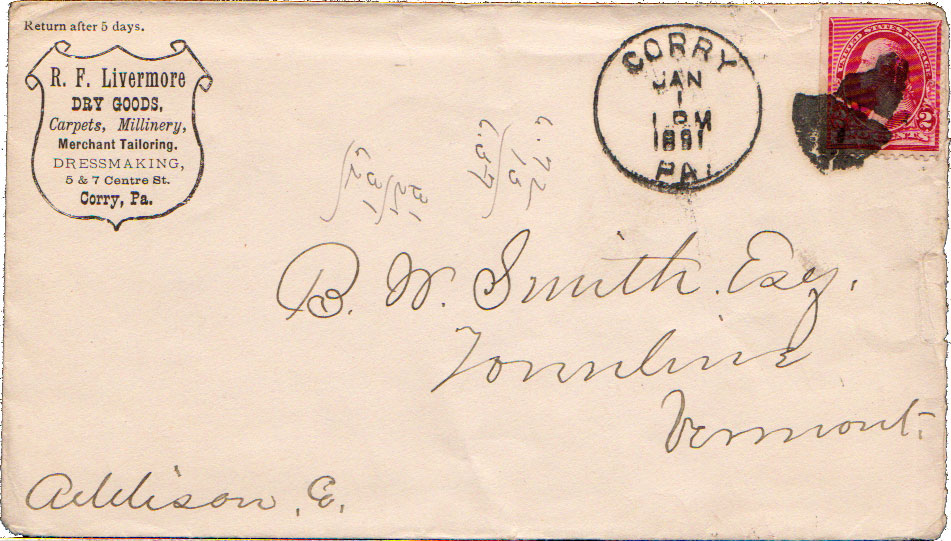 Return after 5 days.
R. F. Livermore
DRY GOODS,
Carpets, Millinery,
Merchant Tailoring.
DRESSMAKING,
5 & 7 Centre St.
Corry, Pa.
CORRY
JAN
1
1 PM
1891
PA.
UNITED STATES POSTAGE
2
B. W. Smith. Esq.
Townline
Vermont.
Addison, Co.